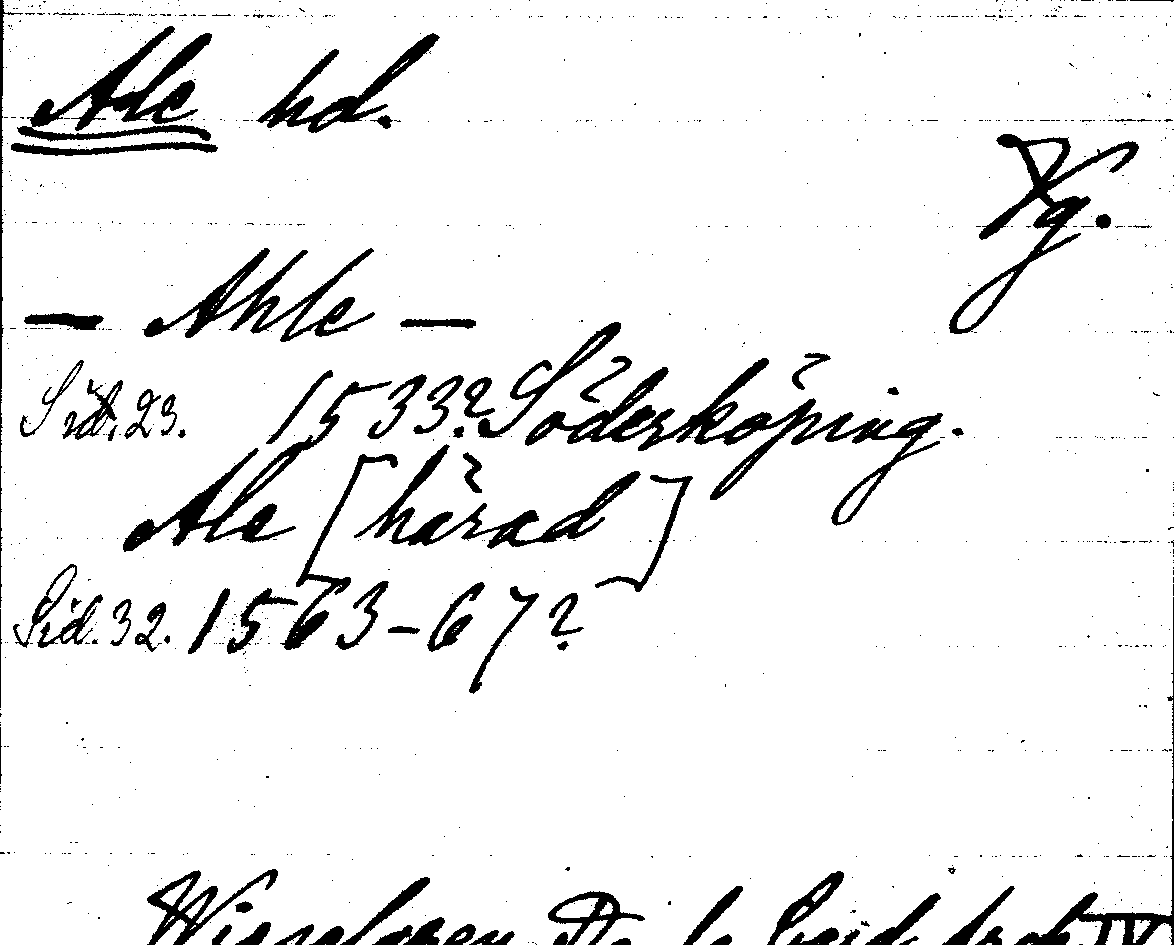 Ale hd.
Vg.
— Ahle —
Sid. 23. 1533? Söderköping.
Ale [härad]
Sid. 32. 1563-67?
De la IV